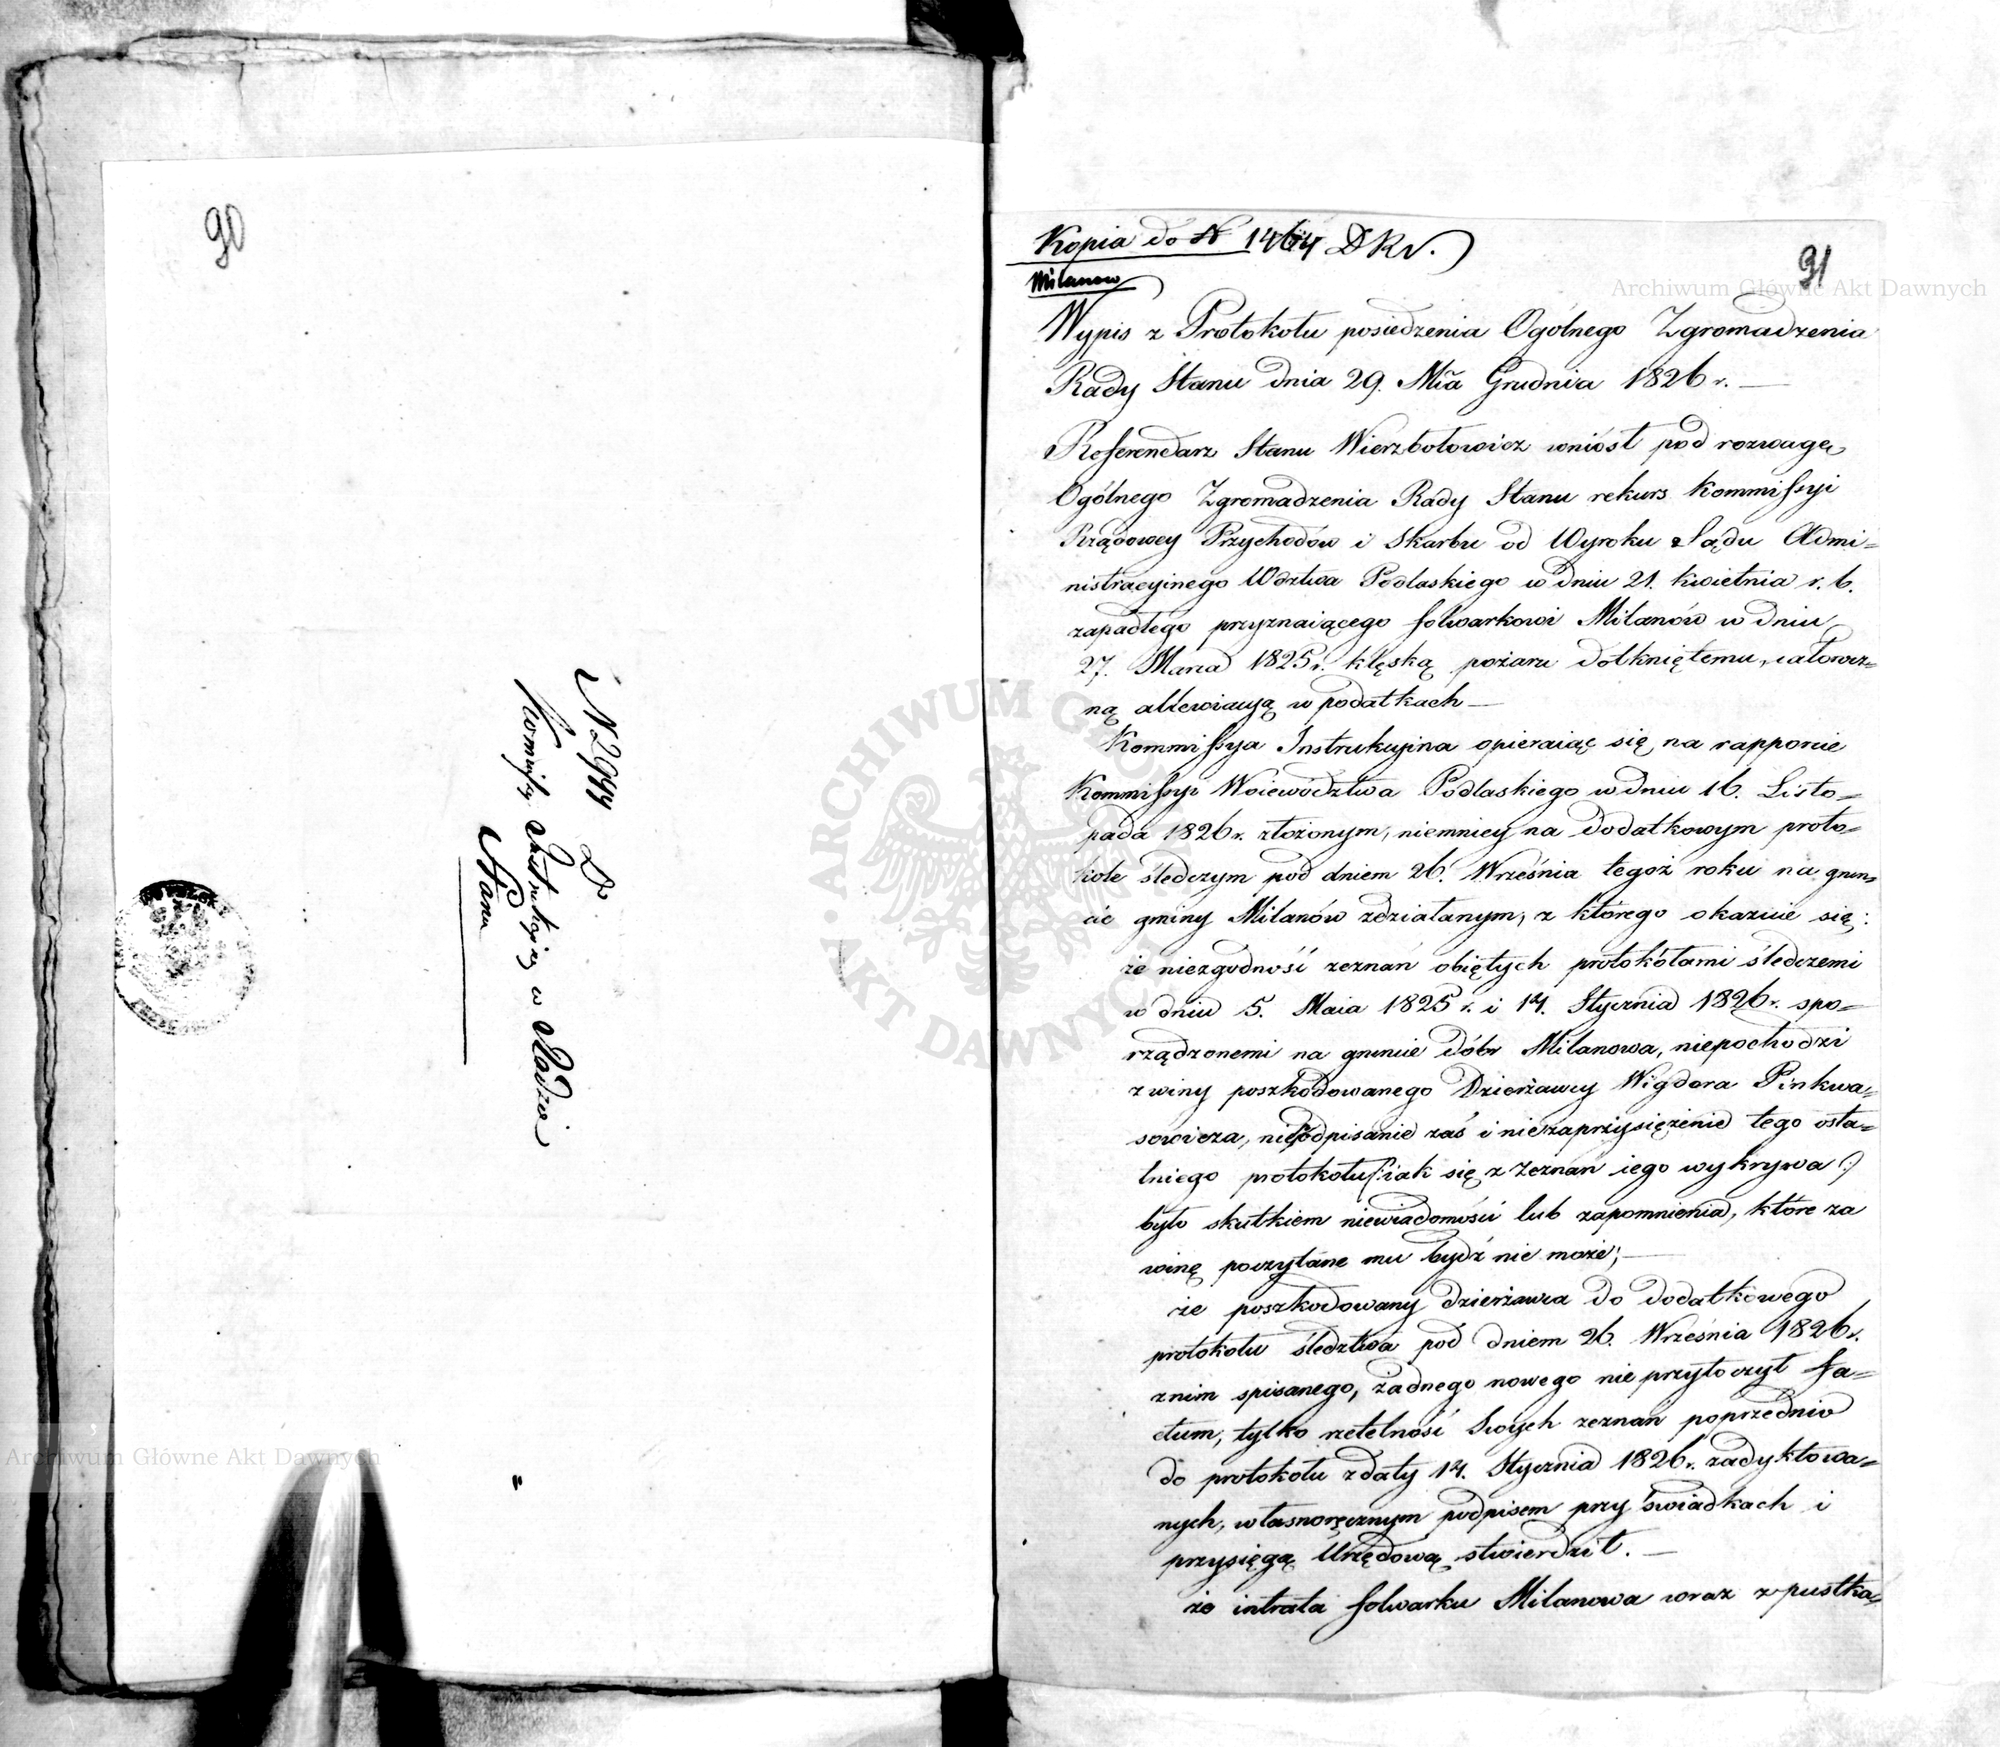 90
N 2944 D.
Kommissyi Instrukcyiney w Radzie
Stanu
Kopia do N 1464 DKN.
91
Milanow
Wypis z Protokołu posiedzenia Ogólnego Zgromadzenia
Rady Stanu dnia 29. Mca Grudnia 1826 r. —
Referendarz Stanu Wierzbołowicz wniósł pod rozwagę
Ogólnego Zgromadzenia Rady Stanu rekurs Kommissyi
Rządowey Przychodów i Skarbu od Wyroku Sądu Admi=
nistracyinego Wdztwa Podlaskiego w dniu 21. kwietnia r. b.
zapadłego przyznaiącego folwarkowi Milanów w dniu
27. Marca 1825 r. klęską pożaru dotkniętemu, całorocz=
ną allewiacyą w podatkach —
Kommissya Instrukcyina opieraiąc się na rapporcie
Kommissyi Woiewództwa Podlaskiego w dniu 16. Listo=
pada 1826 r. złożonym, niemniey na dodatkowym proto=
kole śledczym pod dniem 26. Września tegoż roku na grun=
cie gminy Milanów zdziałanym, z którego okazuie się:
że niezgodność zeznań obiętych protokółami śledczemi
w dniu 5. Maia 1825 r. i 14. Stycznia 1826 r. spo=
rządzonemi na gruncie dóbr Milanowa, niepochodzi
z winy poszkodowanego Dzierżawcy Wigdora Pinkwa=
sowicza, niepodpisanie zaś i niezaprzysiężenie tego osta=
tniego protokołu (: iak się z zeznań iego wykrywa :)
było skutkiem niewiadomości lub zapomnienia, które za
winę poczytane mu bydź nie może; —
że poszkodowany dzierżawca do dodatkowego
protokołu śledztwa pod dniem 26. Września 1826 r.
z nim spisanego, żadnego nowego nie przytoczył fa=
ctum, tylko rzetelność swych zeznań poprzednio
do protokołu z daty 14. Stycznia 1826 r. zadyktowa=
nych, własnoręcznym podpisem przy świadkach i
przysięgą Urzędową stwierdził. —
że intrata folwarku Milanowa wraz z pustka=
Archiwum Główne Akt Dawnych
Archiwum Główne Akt Dawnych
ARCHIWUM GŁÓWNE AKT DAWNYCH